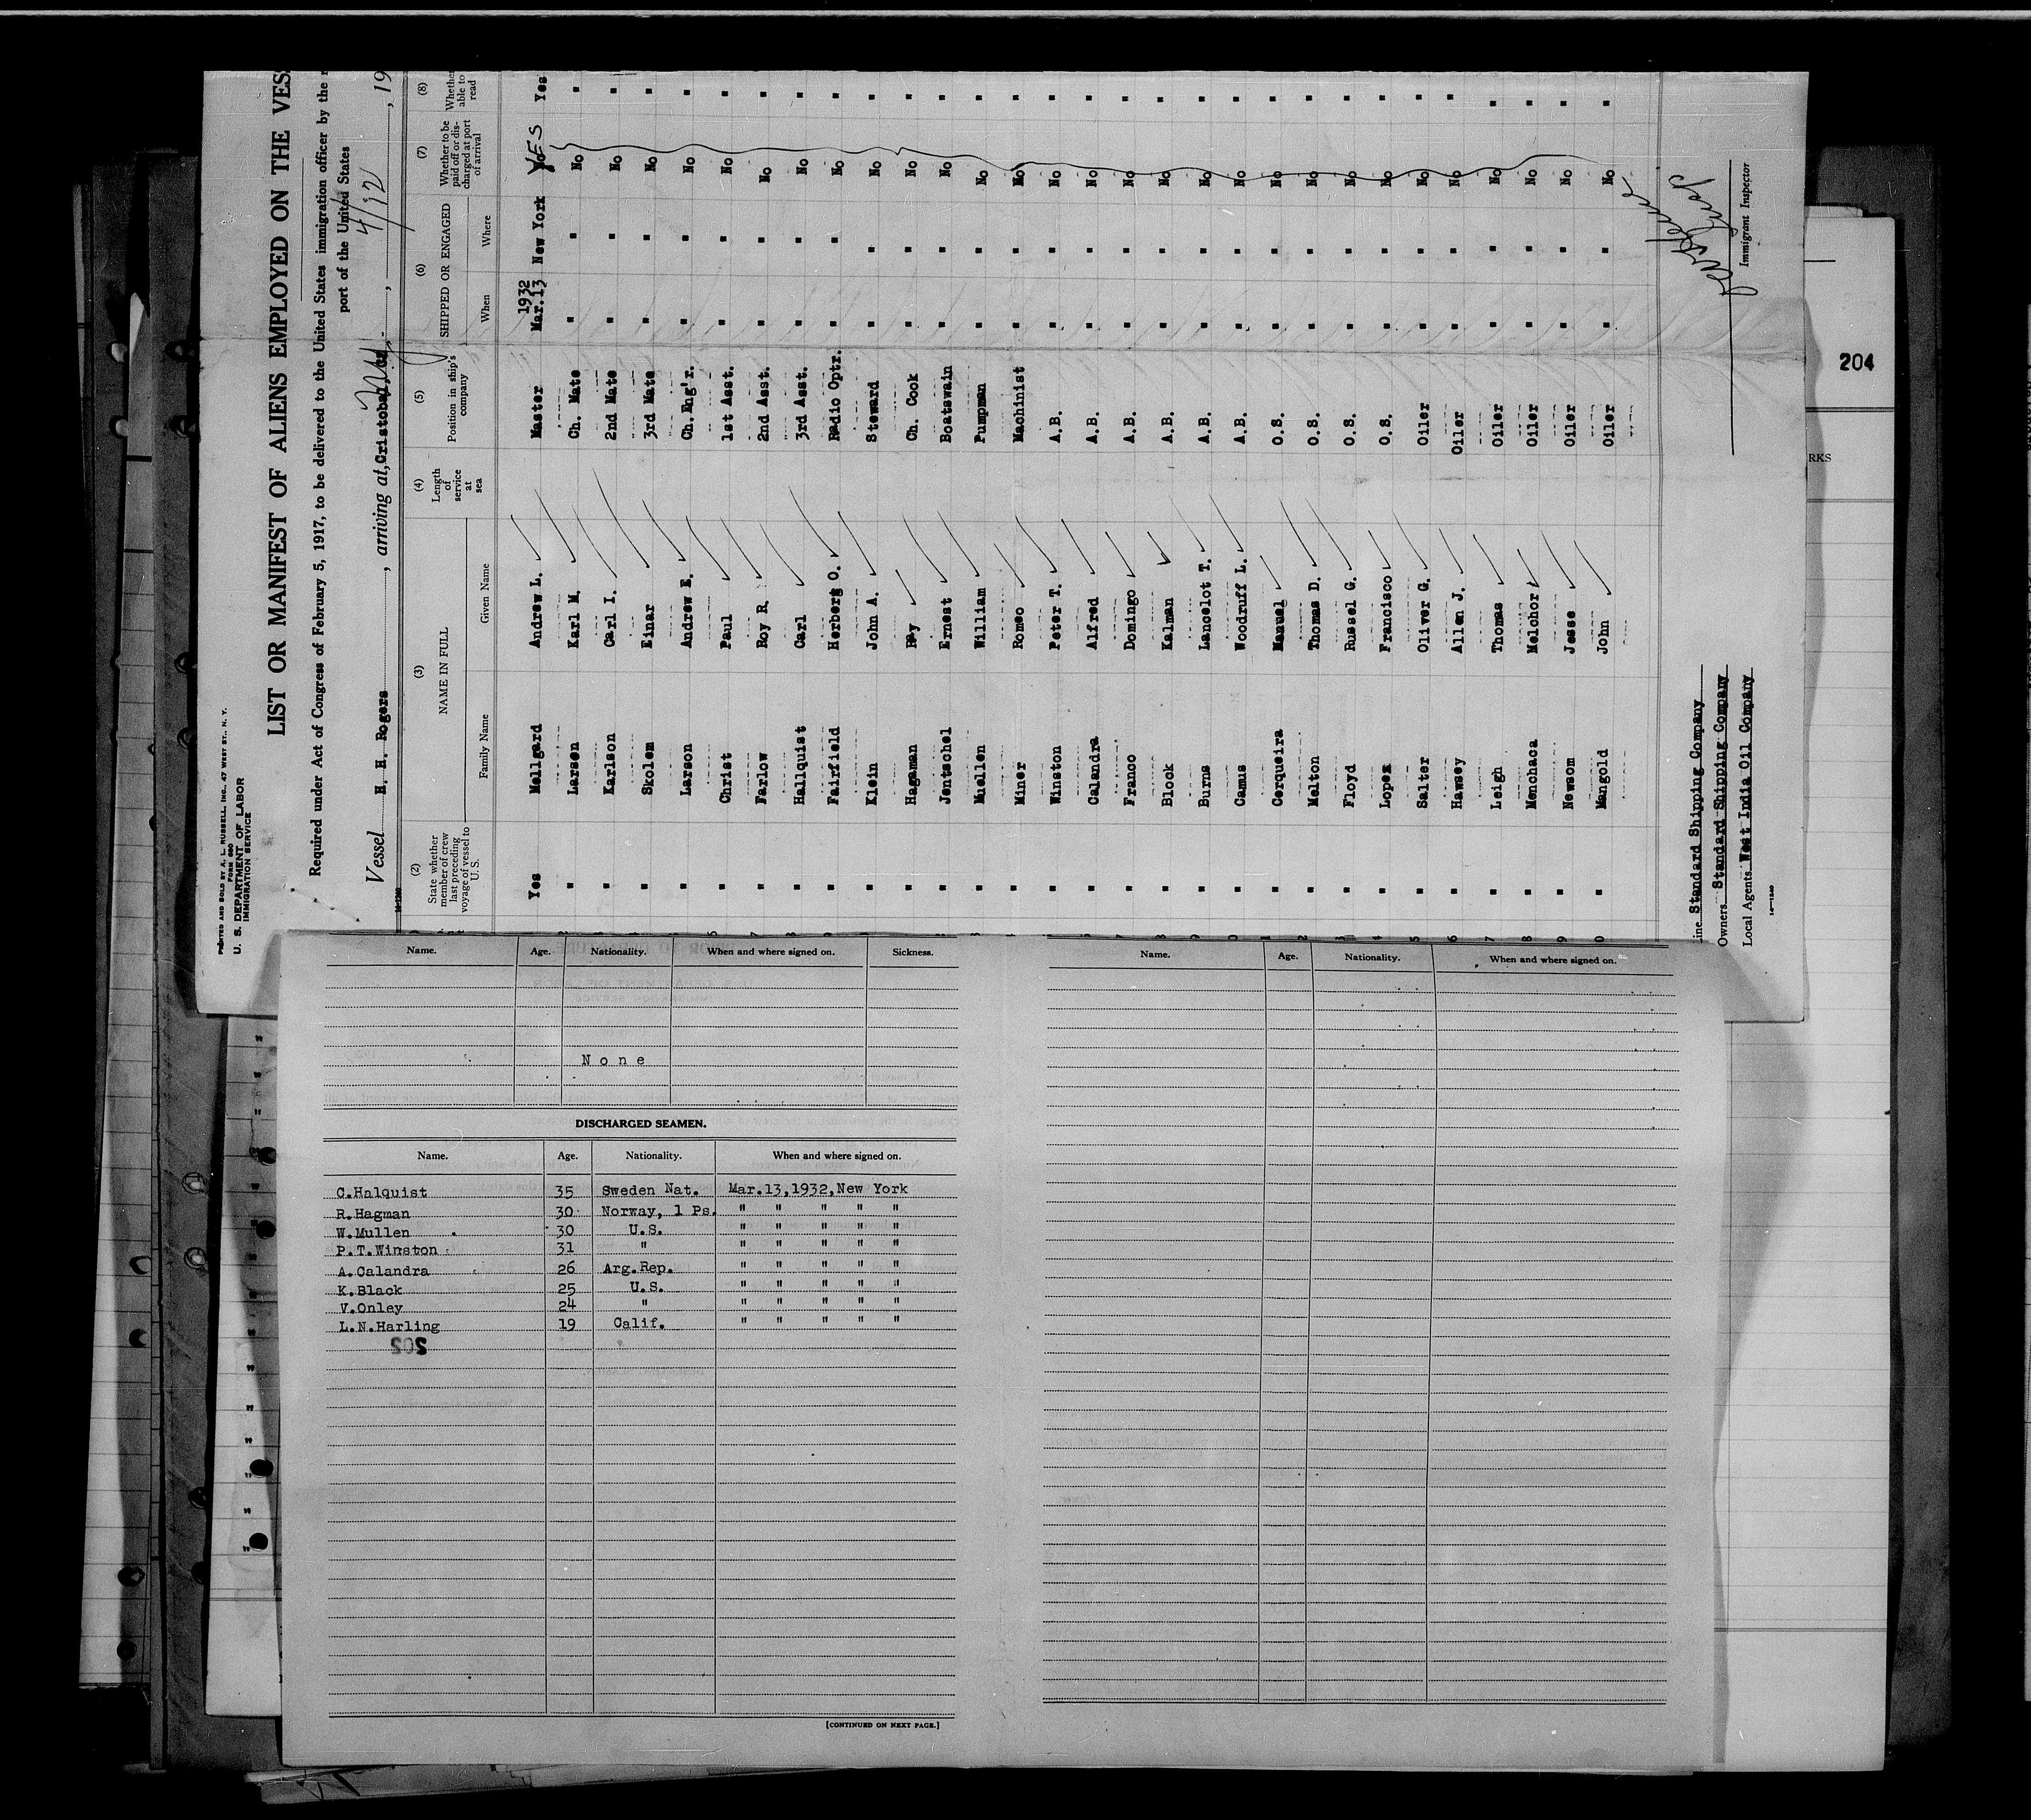 PRINTED AND SOLD BY A. L. RUSSELL, INC., 47 WEST ST., N. Y.
FORM 680
U. S. DEPARTMENT OF LABOR
IMMIGRATION SERVICE
LIST OR MANIFEST OF ALIENS EMPLOYED ON THE VES
Required under Act of Congress of February 5, 1917, to be delivered to the United States immigration officer by the r
port of the United States
Vessel H. H. Rogers, arriving at, Cristobal, , 19
(2) (3) (4) (5) (6) (7) (8)
State whether member of crew last preceding voyage of vessel to U. S. NAME IN FULL Length of service at sea Position in ship's company SHIPPED OR ENGAGED Whether to be paid off or discharged at port of arrival Whether able to read
Family Name Given Name When Where
1932
Yes Mellgard Andrew L. Master Mar.13 New York No YES Yes
" Larsen Karl M. Ch. Mate " " No "
" Karlson Carl I. 2nd Mate " " No "
" Skolem Einar 3rd Mate " " No "
" Larson Andrew E. Ch.Eng'r. " " No "
" Christ Paul 1st Asst. " " No "
" Farlow Roy R. 2nd Asst. " " No "
" Hallquist Carl 3rd Asst. " " No "
" Fairfield Herberg O. Radio Optr. " " No "
" Klein John A. Steward " " No "
" Hagaman Ray Ch. Cook " " No "
" Jentschel Ernest Boatswain " " No "
" Muellen William Pumpman " " No "
" Miner Romeo Machinist " " No "
" Winston Peter T. A.B. " " No "
" Calandra Alfred A.B. " " No "
" Franco Domingo A.B. " " No "
" Block Kalman A.B. " " No "
" Burns Lancelot T. A.B. " " No "
" Camus Woodruff L. A.B. " " No "
" Cerqueira Manuel O.S. " " No "
" Melton Thomas D. O.S. " " No "
" Floyd Russel G. O.S. " " No "
" Lopez Francisco O.S. " " No "
" Salter Oliver G. Oiler " " No "
" Hawsey Allen J. Oiler " " No "
" Leigh Thomas Oiler " " No "
" Menchaca Melchor Oiler " " No "
" Newsom Jesse Oiler " " No "
" Mangold John Oiler " " No "
ine Standard Shipping Company
Owners Standard Shipping Company
Local Agents West India Oil Company
Immigrant Inspector
14—1240
204
RKS
Name. Age. Nationality. When and where signed on. Sickness.
None
DISCHARGED SEAMEN.
Name. Age. Nationality. When and where signed on.
C.Halquist 35 Sweden Nat. Mar.13,1932,New York
R.Hagman 30 Norway, 1 Ps. " " " " "
W.Mullen 30 U.S. " " " " "
P.T.Winston 31 " " " " " "
A.Calandra 26 Arg.Rep. " " " " "
K.Black 25 U.S. " " " " "
V.Onley 24 " " " " " "
L.N.Harling 19 Calif. " " " " "
202
[CONTINUED ON NEXT PAGE.]
Name. Age. Nationality. When and where signed on.